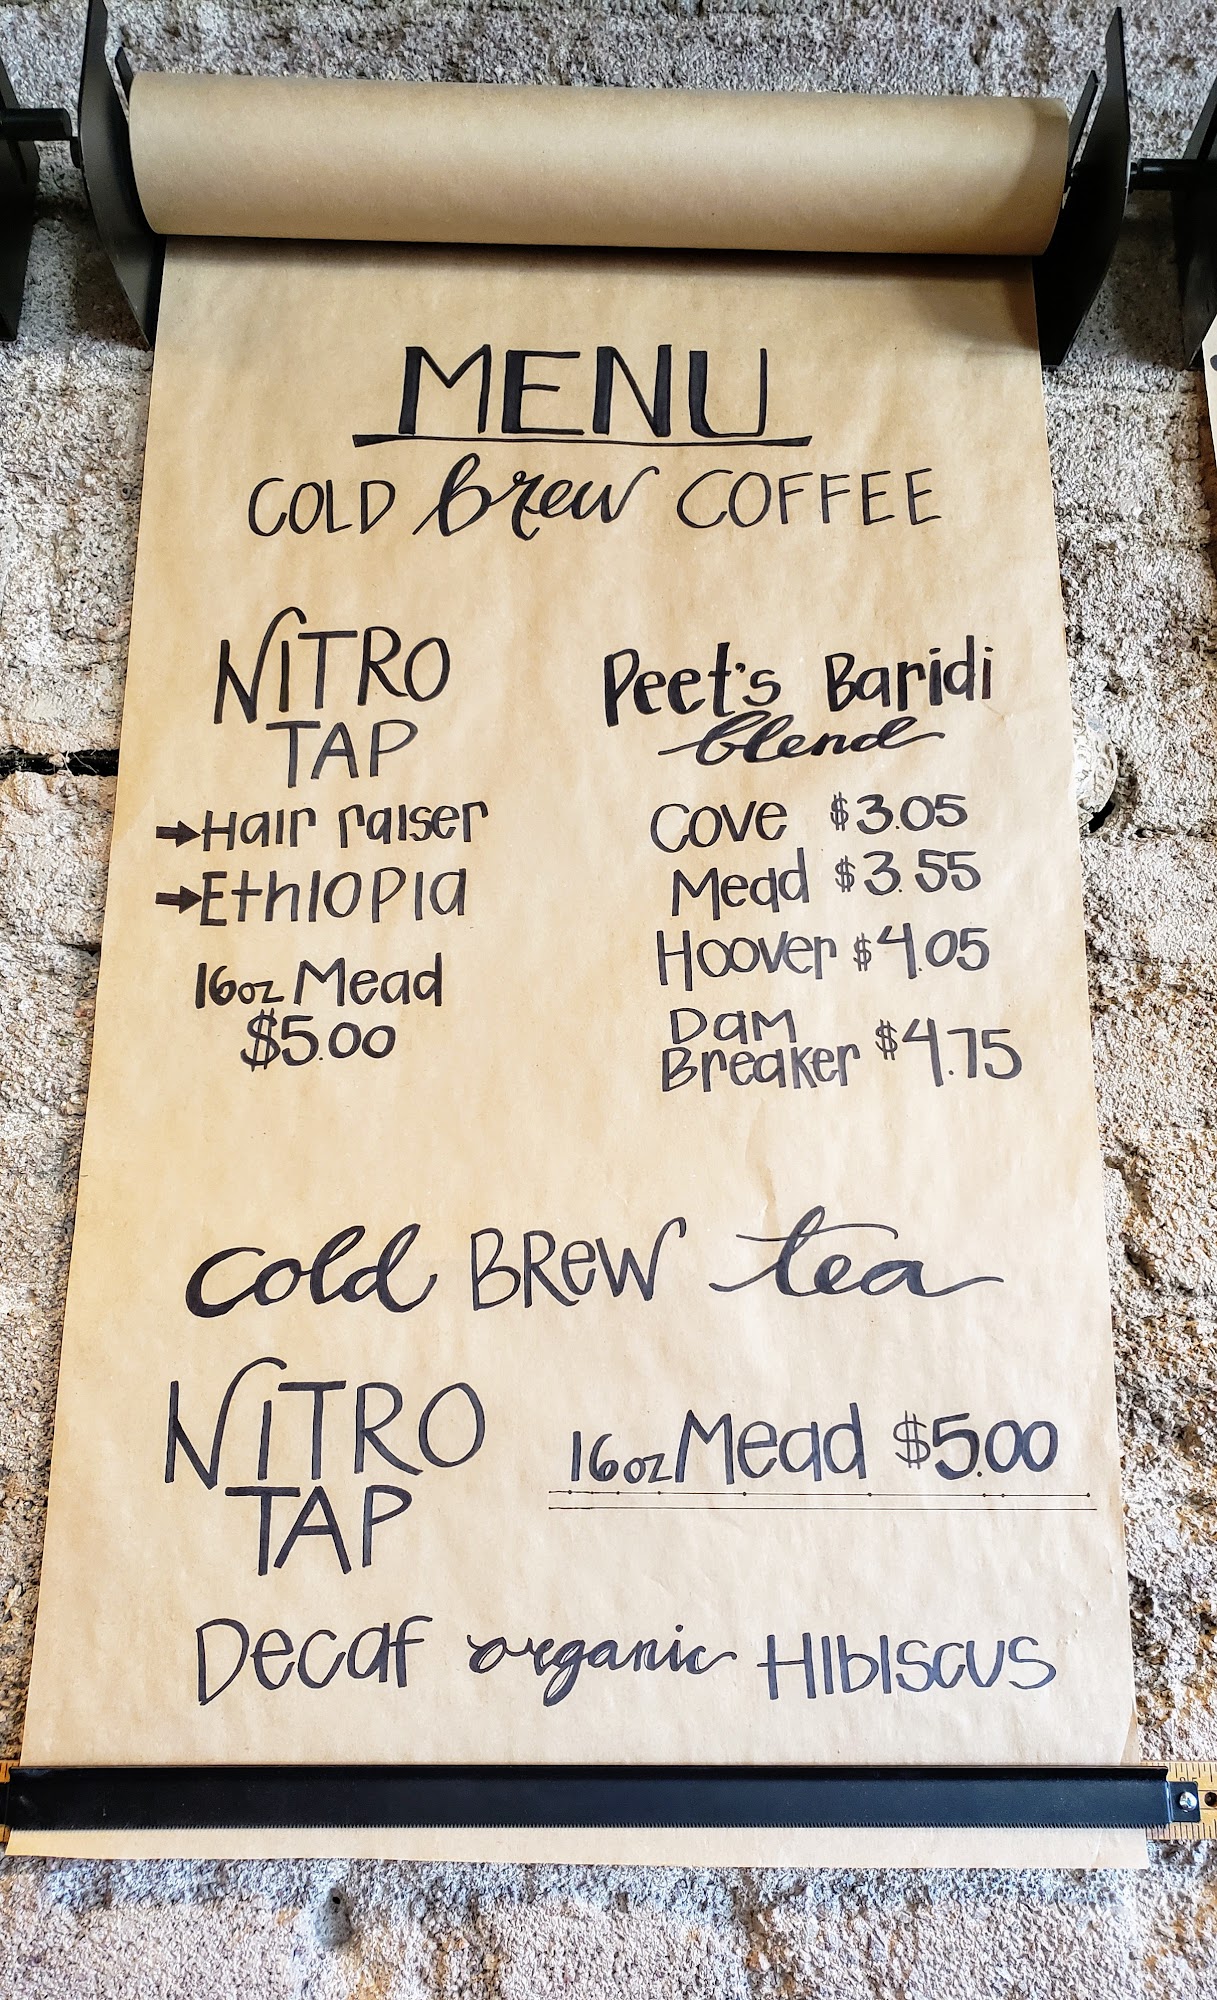 MENU
COLD brew COFFEE
NITRO
TAP
→Hair raiser
→Ethiopia
16oz Mead
$5.00
Peet's Baridi
blend
Cove $3.05
Mead $3.55
Hoover $4.05
Dam
Breaker $4.75
cold BREW tea
NITRO
TAP
16oz Mead $5.00
Decaf organic Hibiscus